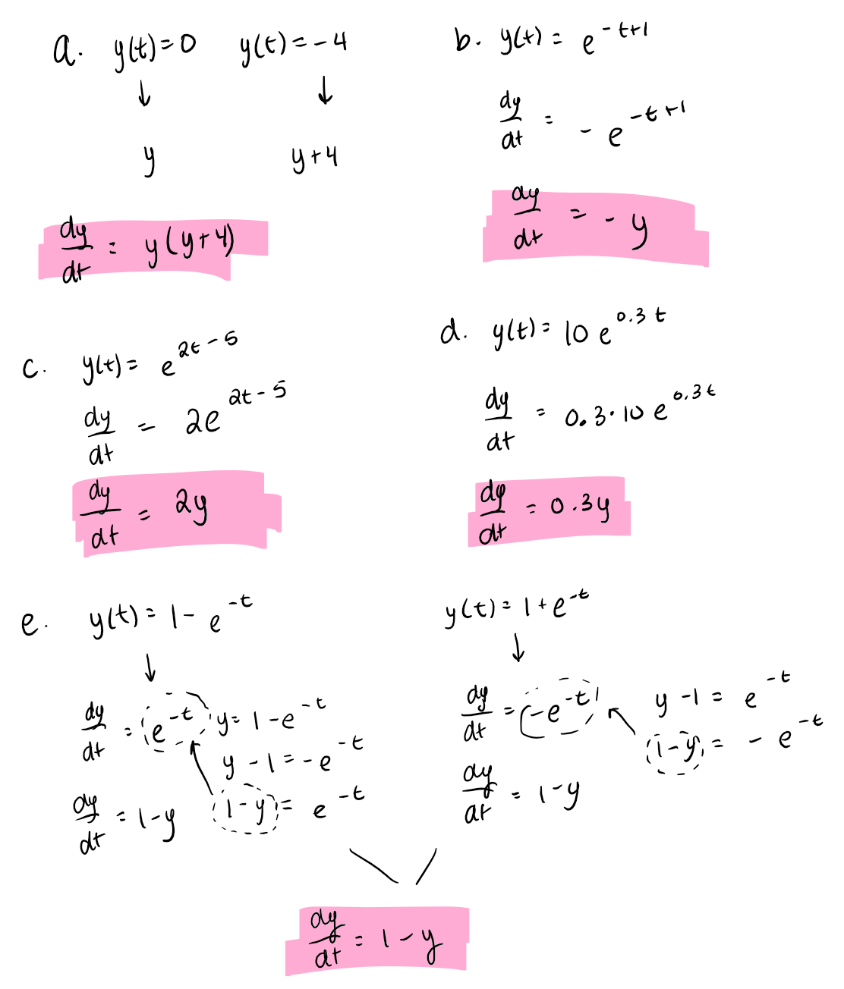 a. y(t)=0 y(t)=-4
↓ ↓
y y+4
dy/dt = y(y+4)
b. y(t) = e^{-t+1}
dy/dt = -e^{-t+1}
dy/dt = -y
c. y(t) = e^{2t-5}
dy/dt = 2e^{2t-5}
dy/dt = 2y
d. y(t) = 10e^{0.3t}
dy/dt = 0.3·10e^{0.3t}
dy/dt = 0.3y
e. y(t) = 1-e^{-t}
↓
dy/dt = e^{-t} y = 1-e^{-t}
y-1 = -e^{-t}
dy/dt = 1-y 1-y = e^{-t}
y(t) = 1+e^{-t}
↓
dy/dt = -e^{-t} y-1 = e^{-t}
1-y = -e^{-t}
dy/dt = 1-y
dy/dt = 1-y